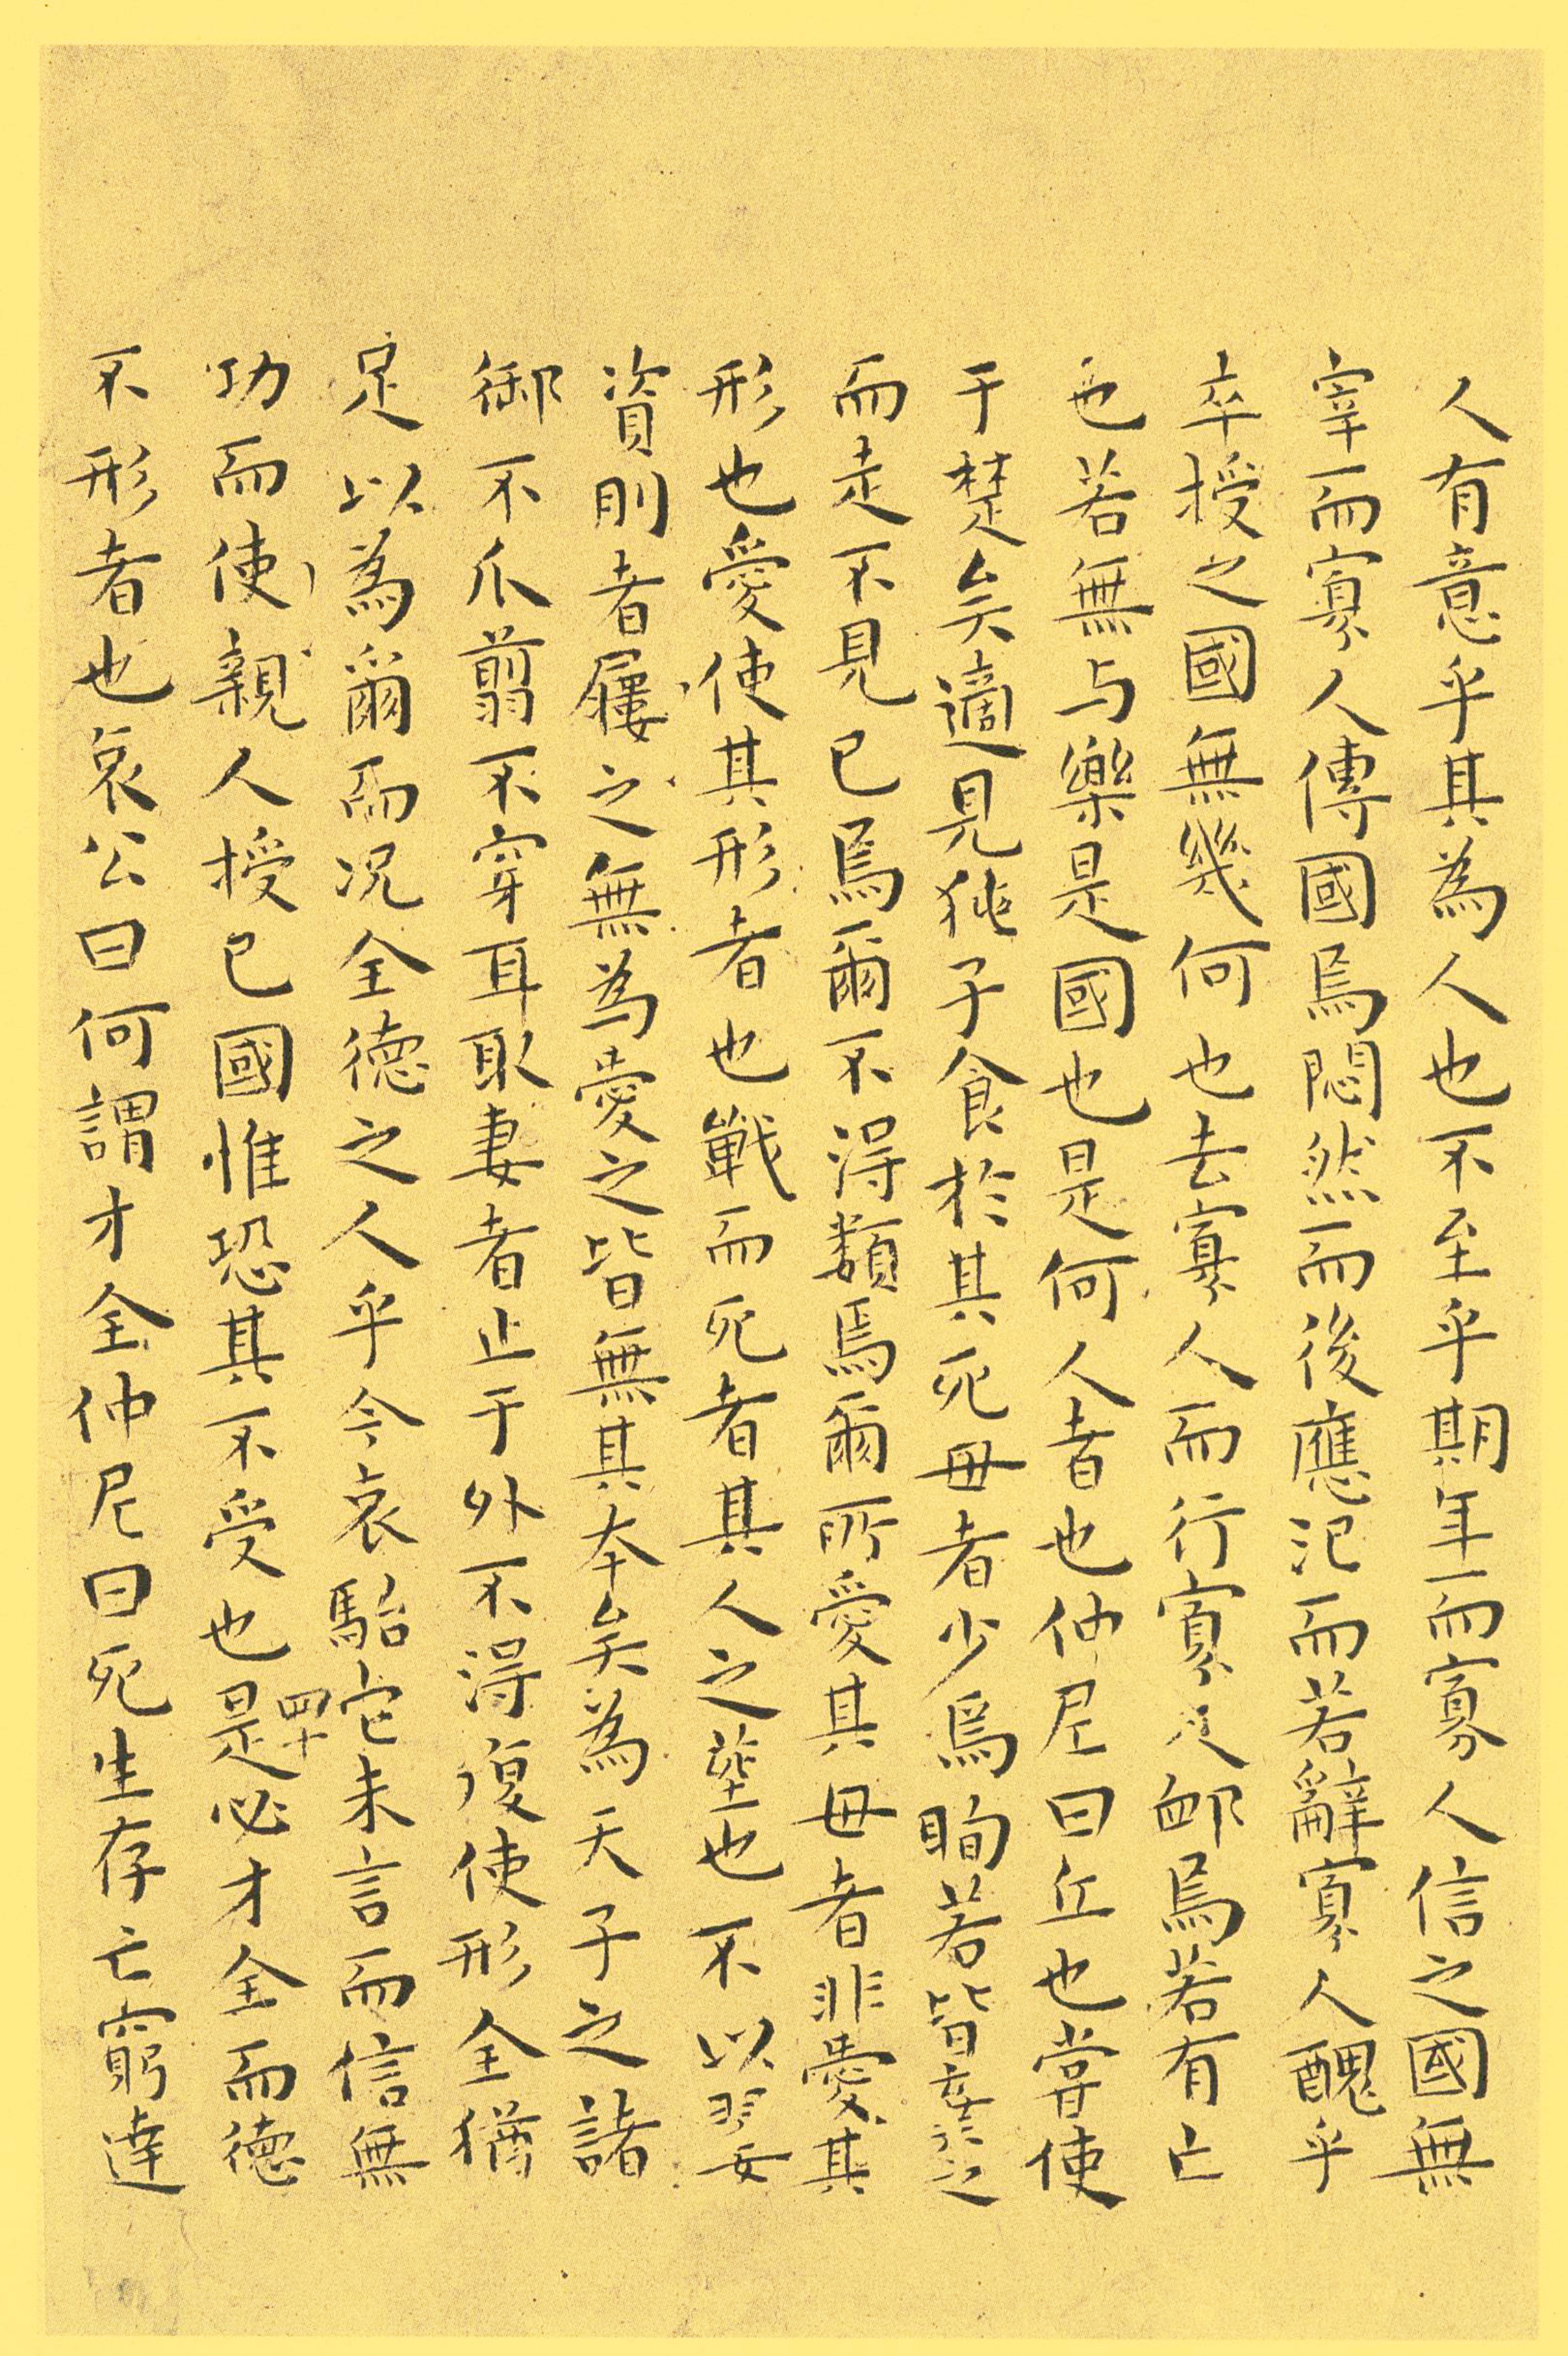 人有意乎其為人也不至乎期年而寡人信之國無
宰而寡人傳國焉悶然而後應氾而若辭寡人醜乎
卒授之國無幾何也去寡人而行寡人卹焉若有亡
也若無与樂是國也是何人者也仲尼曰丘也嘗使
于楚矣適見㹠子食於其死母者少焉眴若皆棄之
而走不見己焉爾不得類焉爾所愛其母者非愛其
形也愛使其形者也戰而死者其人之塟也不以翣
資刖者屨之無為愛之皆無其本矣為天子之諸
御不爪翦不穿耳取妻者止于外不得復使形全猶
足以為爾而况全德之人乎今哀駘它未言而信無
功而使親人授己國惟恐其不受也是必才全而德
不形者也哀公曰何謂才全仲尼曰死生存亡窮達
四十